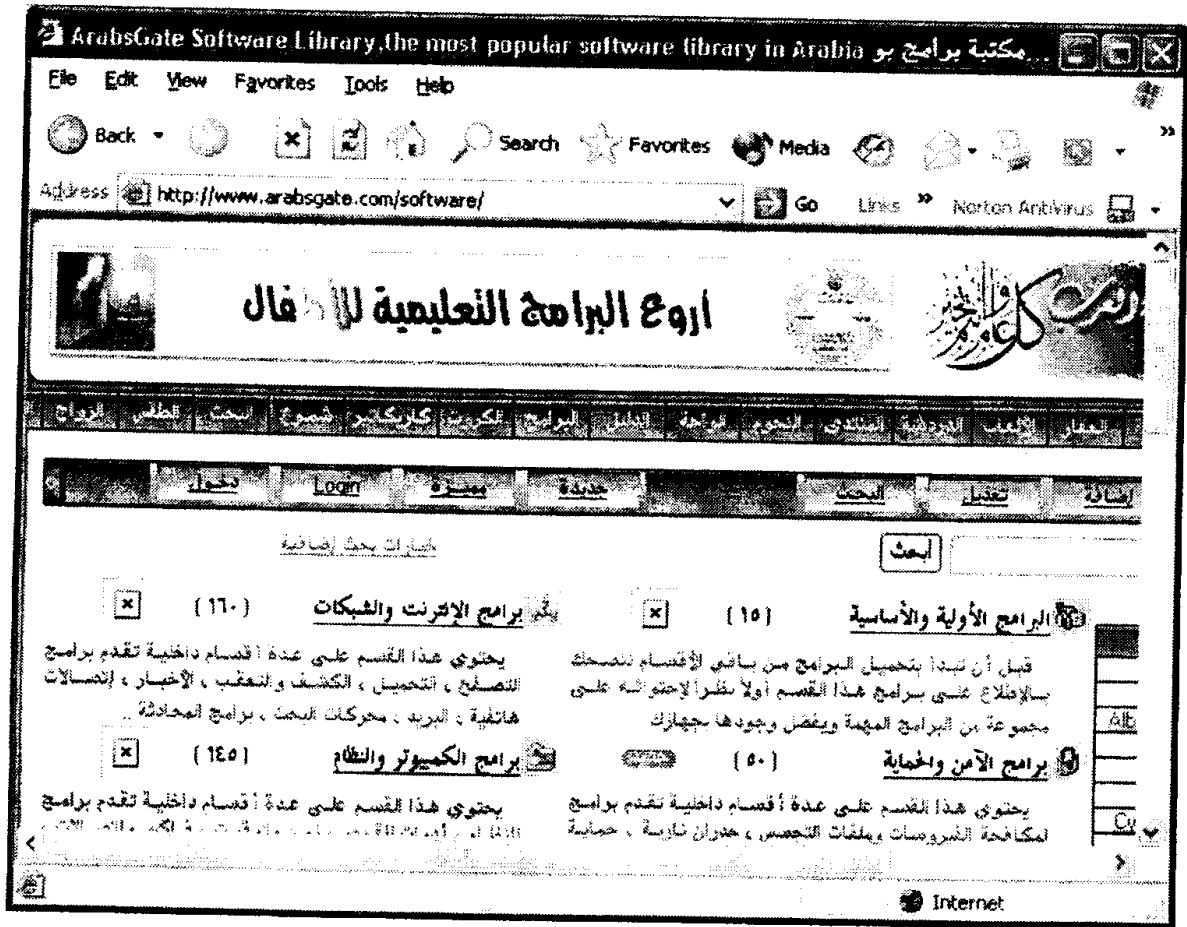 ArabsGate Software Library,the most popular software library in Arabia مكتبة برامج بو...
File Edit View Favorites Tools Help
Back Search Favorites Media
Address http://www.arabsgate.com/software/ Go Links » Norton AntiVirus
اروع البرامج التعليمية للأطفال
كل عام وأنتم بخير
الألعاب الدردشة المنتدى النجوم الدليل البرامج الكروت كاريكاتير شموع البحث الطقس الزواج
إضافة تعديل البحث جديدة مميزة Login دخول
أبحث خيارات بحث إضافية
البرامج الأولية والأساسية (١٥)
قبل أن تبدأ بتحميل البرامج من باقي الأقسام ننصحك
بالإطلاع على برامج هذا القسم أولاً نظراً لإحتوائه على
مجموعة من البرامج المهمة ويفضل وجودها بجهازك
برامج الإنترنت والشبكات (١٦٠)
يحتوي هذا القسم على عدة أقسام داخلية تقدم برامج
التصفح ، التحميل ، الكشف والتعقب ، الأخبار ، إتصالات
هاتفية ، البريد ، محركات البحث ، برامج المحادثة ..
برامج الأمن والحماية (٥٠)
يحتوي هذا القسم على عدة أقسام داخلية تقدم برامج
لمكافحة الفيروسات وملفات التجسس ، جدران نارية ، حماية
برامج الكمبيوتر والنظام (١٤٥)
يحتوي هذا القسم على عدة أقسام داخلية تقدم برامج
Alb
Cu
Internet